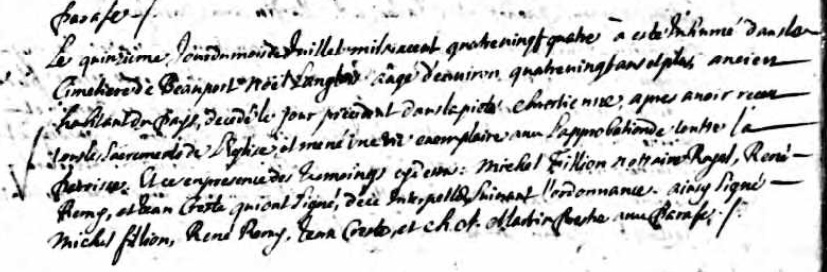 parafe ./.
Le quinzieme Jour du mois de Juillet mil six cent quatre vingt quatre à esté Inhumé dans le
Cimetiere de Beauport Noël Langlois aagé d'environ quatre vingt ans et plus, ancien
habitant du Pays, decedé le jour precedent dans la pieté chrestienne, apres avoir receu
tous les Sacrements de l'Eglise, et mené une vie exemplaire avec l'approbation de toutte la
Paroisse. Et ce en presence des tesmoings cy : Michel fillion nottaire Royal, René
Remy, et Jean Creste qui ont signé, de ce Interpellés suivant l'ordonnance. ainsy signé
Michel fillion, René Remy, Jean Creste, et Martin Prestre avec Parafe ./.